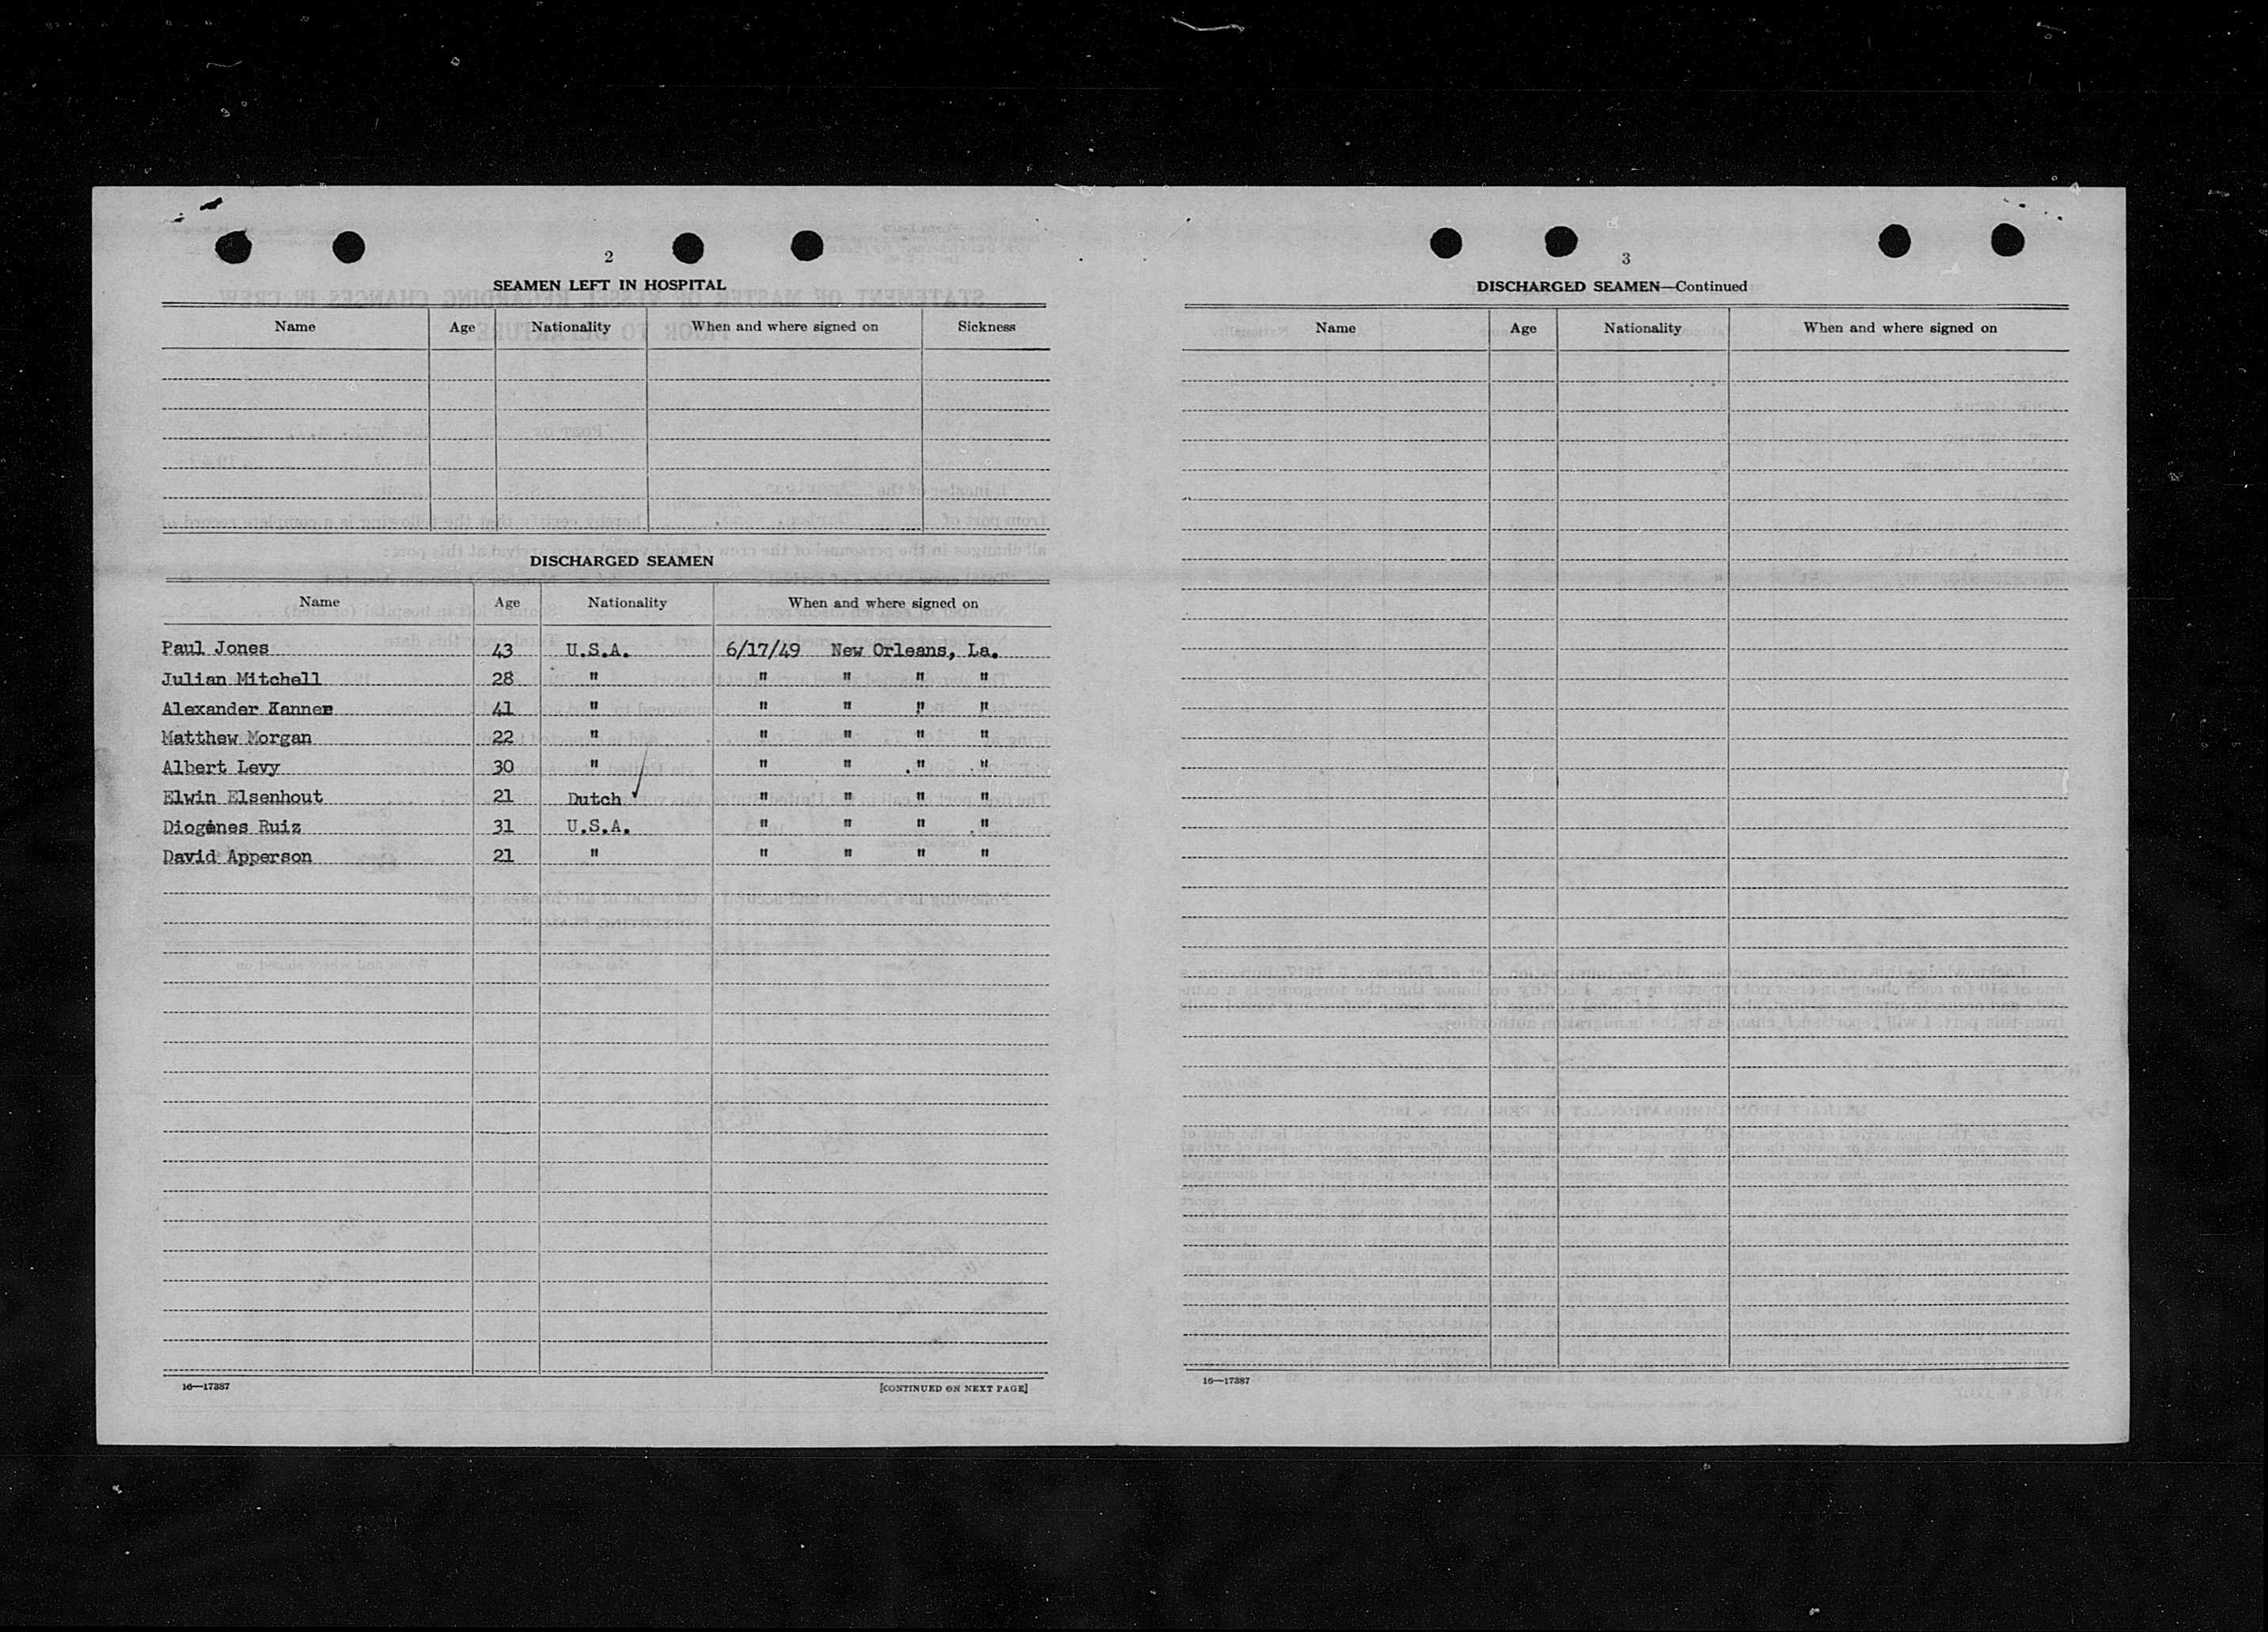 2
SEAMEN LEFT IN HOSPITAL
Name Age Nationality When and where signed on Sickness
DISCHARGED SEAMEN
Name Age Nationality When and where signed on
Paul Jones 43 U.S.A. 6/17/49 New Orleans, La.
Julian Mitchell 28 " " " " "
Alexander Kanner 41 " " " " "
Matthew Morgan 22 " " " " "
Albert Levy 30 " " " " "
Elwin Elsenhout 21 Dutch ✓ " " " "
Diogenes Ruiz 31 U.S.A. " " " "
David Apperson 21 " " " " "
16—17387 [CONTINUED ON NEXT PAGE]
3
DISCHARGED SEAMEN—Continued
Name Age Nationality When and where signed on
16—17387